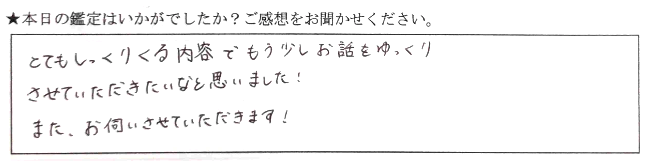 ★本日の鑑定はいかがでしたか？ご感想をお聞かせください。
とてもしっくりくる内容でもう少しお話をゆっくり
させていただきたいなと思いました！
また、お伺いさせていただきます！